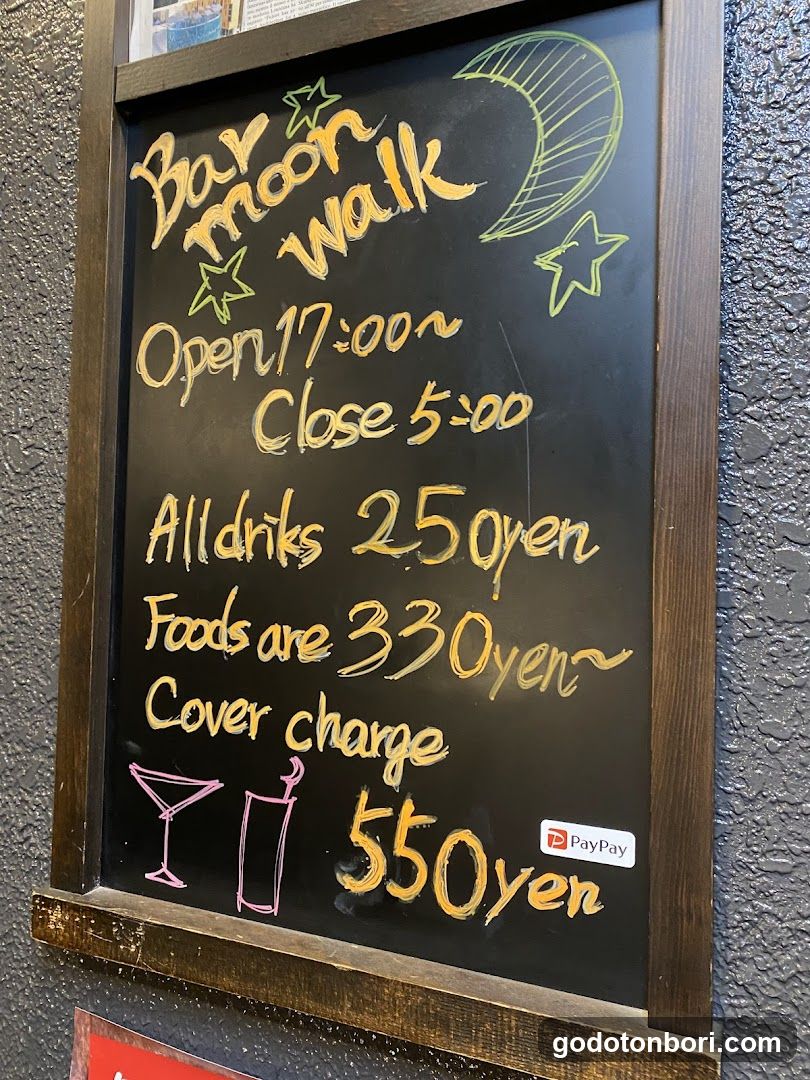 Bar
moon
walk
Open 17:00~
Close 5:00
All driks 250yen
Foods are 330yen~
Cover charge
550yen
PayPay
godotonbori.com